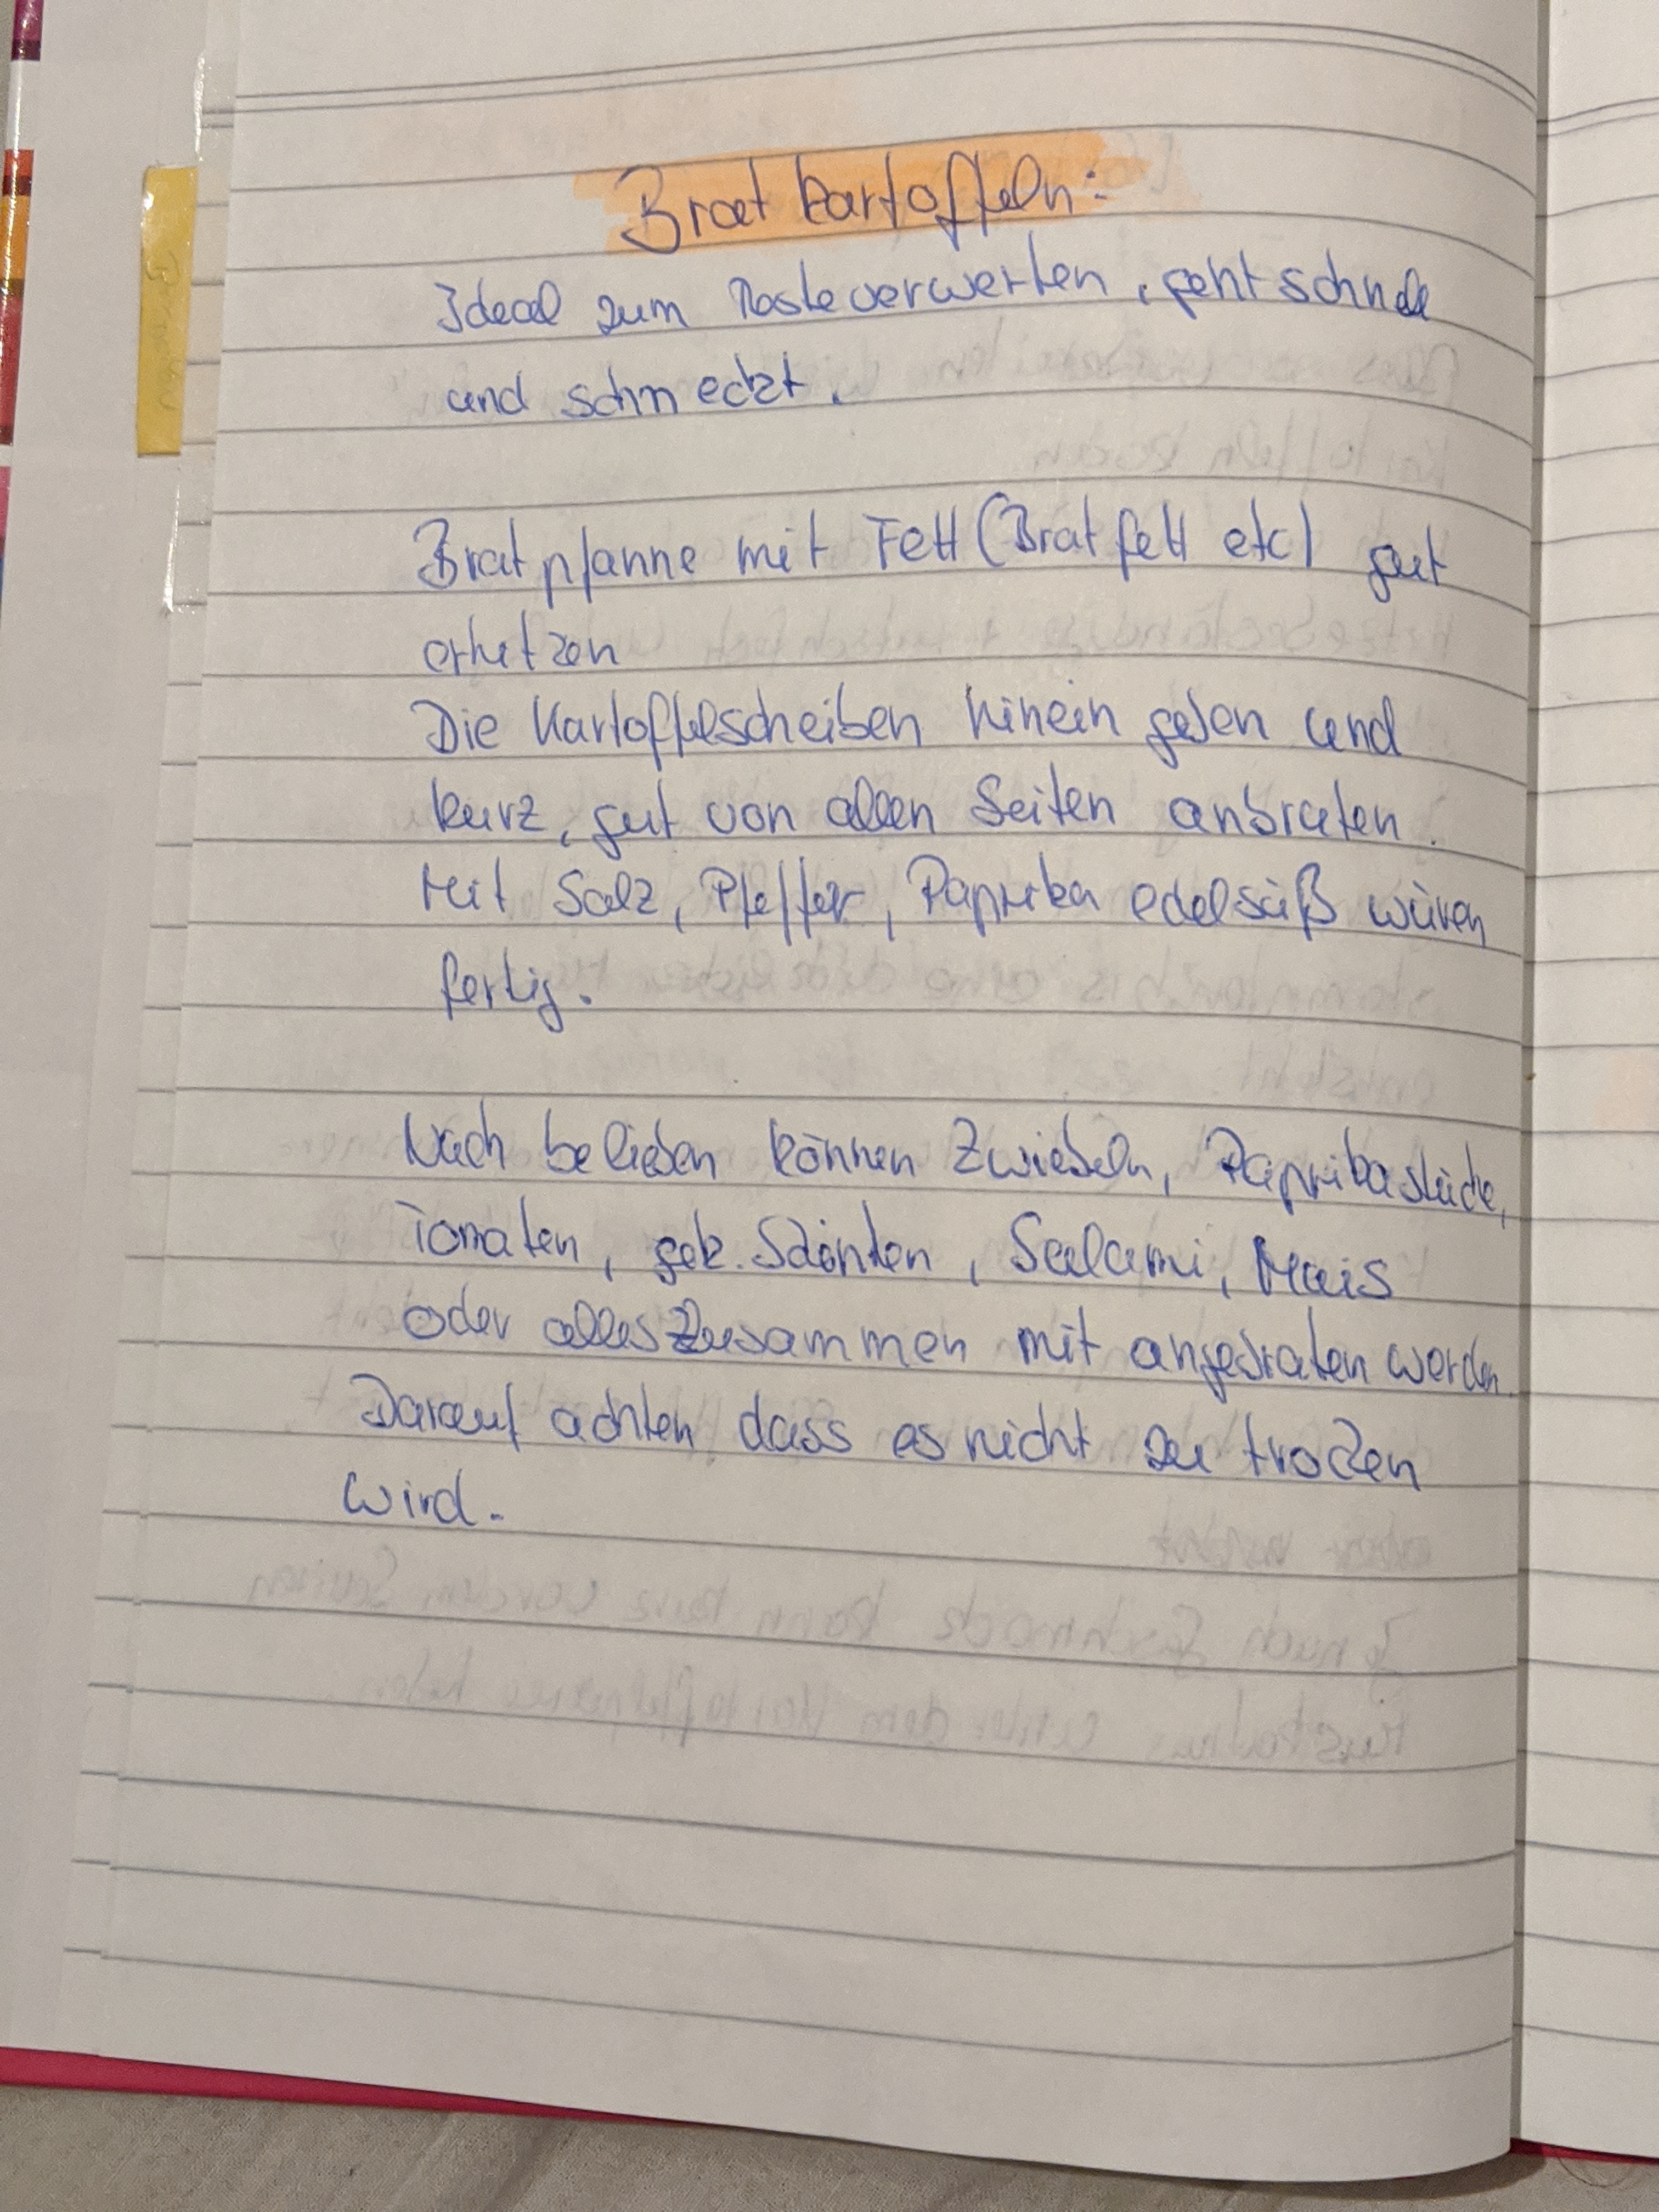 Bratkartoffeln:
Ideal zum Resteverwerten, geht schnell
und schmeckt.
Bratpfanne mit Fett (Bratfett etc) gut
erhitzen
Die Kartoffelscheiben hinein geben und
kurz, gut von allen Seiten anbraten.
Mit Salz, Pfeffer, Paprika edelsüß würen
fertig.
Nach belieben können Zwiebeln, Paprikastücke,
Tomaten, gek. Schinken, Salami, Mais
oder alles Zusammen mit angebraten werden.
Darauf achten dass es nicht zu trocken
wird.